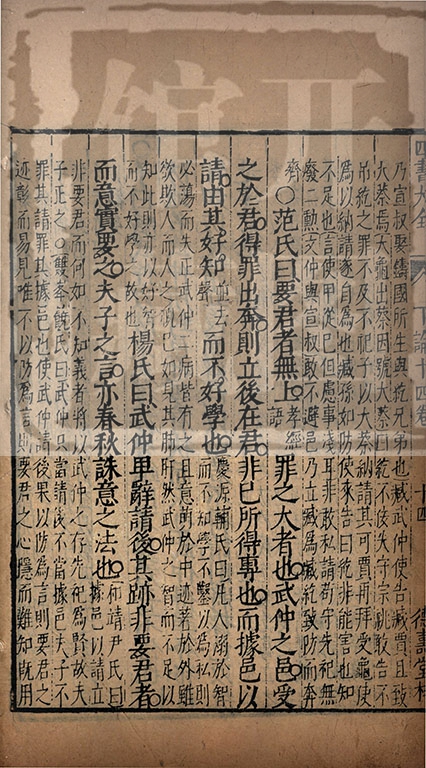 四書大全 下論十四卷 十四 德壽堂梓
乃宣叔娶鑄國所生與紇兄弟也臧武仲使告臧賈且致
大蔡焉大龜出蔡因號大蔡曰紇不佞失守宗祧敢告不
吊紇之罪不及不祀子以大蔡納請其可賈再拜受龜使
為以納請遂自為也臧孫如防使來告曰紇非能害也知
不足也言使甲從已但慮事淺耳非敢私請苟守先祀無
廢二勲文仲與宣叔敢不避邑乃立臧為臧紇致防而奔
齊○范氏曰要君者無上孝經語罪之大者也武仲之邑受
之於君得罪出奔則立後在君非己所得專也而據邑以
請由其好知並去聲而不好學也慶源輔氏曰凡人溺於智而不知學不鑿以為私則
必蕩而失正武仲二病皆有之且意萌於中迹著於外雖
欲欺人而人之視己如見其肺肝然武仲之智而不足以
知此則亦以好智而不好學之故也楊氏曰武仲卑辭請後其跡非要君者
而意實要之夫子之言亦春秋誅意之法也和靖尹氏曰據邑以請立
非要君而何如不知義者將以武仲之存先祀為賢故夫
子正之○雙峯饒氏曰武仲只當請後不當據邑夫子不
罪其請罪其據邑也使武仲請後果以防為言則要君之
迹彰而易見唯不以防為言則要君之心隱而難知既用